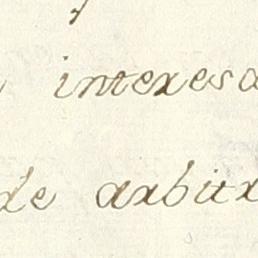 interesa
de arbitr